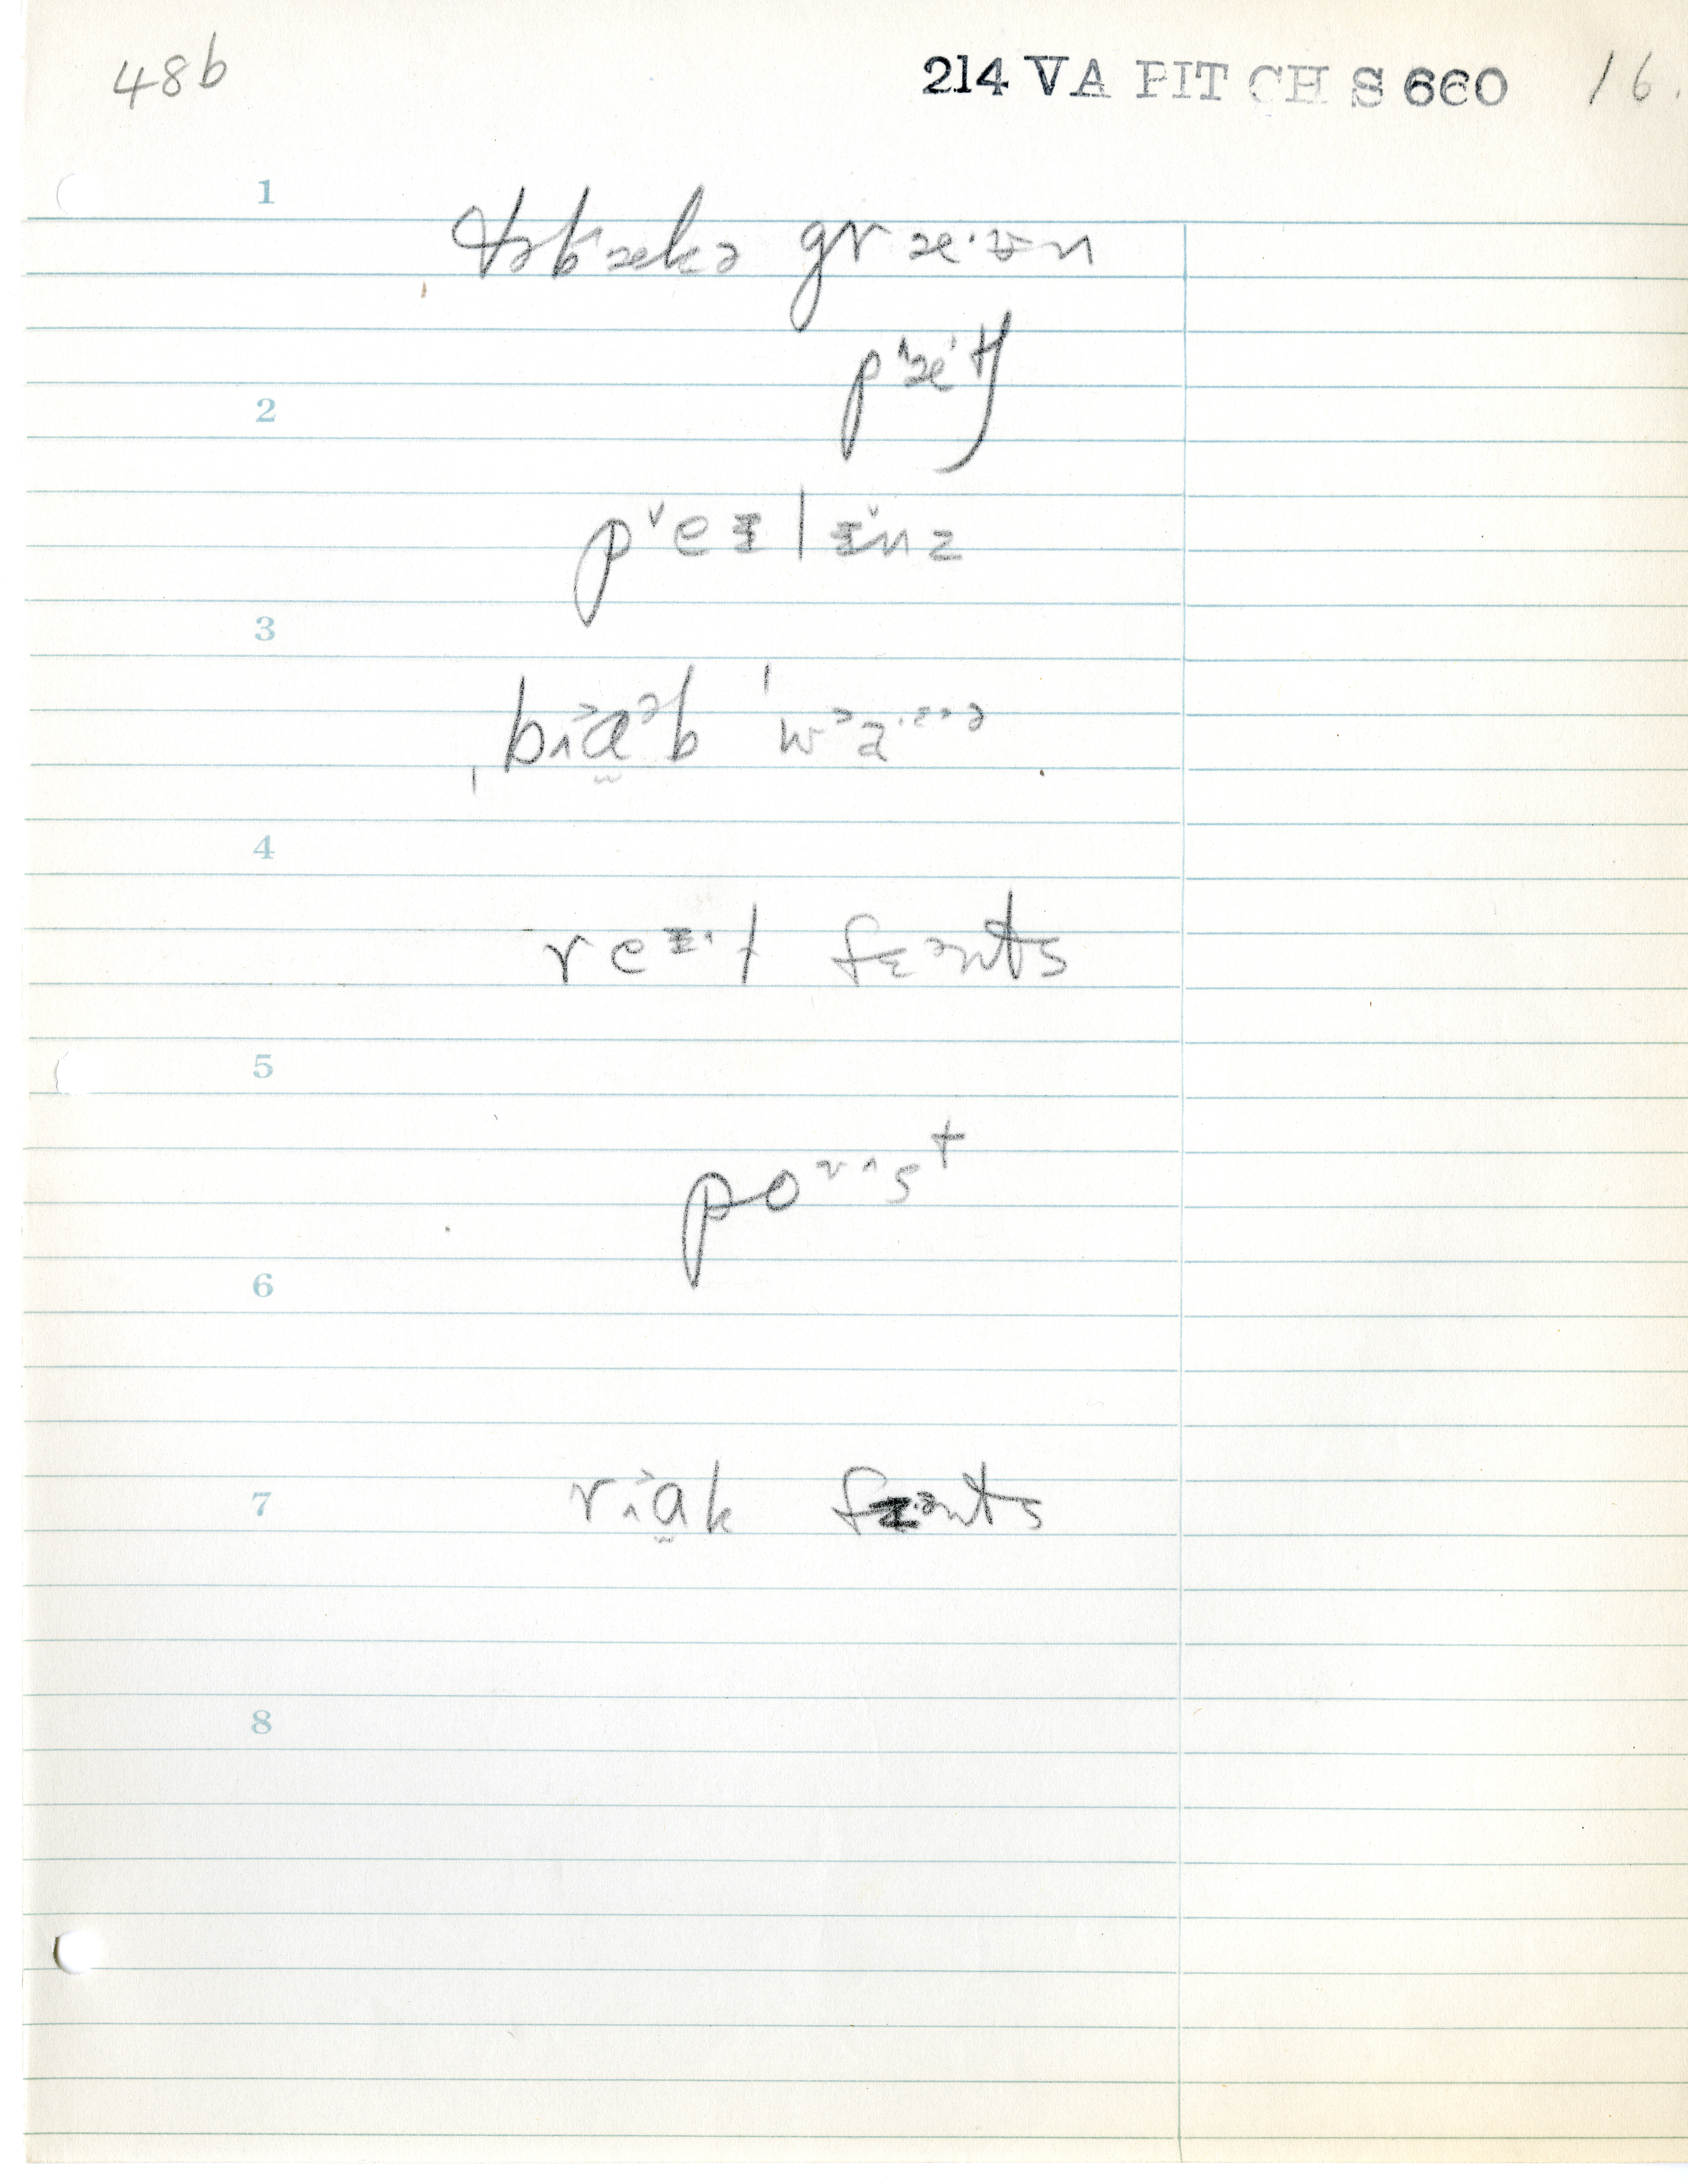 48b 214 VA PITCH S 660 16.
1
təbækə græ·ʉn
p˄æ'tʃ
2
p˅eɪlɪ˅nz
3
ˌb˄ɑ̰ᵊb
4
reɪ·l fɛənts
5
poʊ˄st
6
7
r˄ɑ̰k fɛənts
8